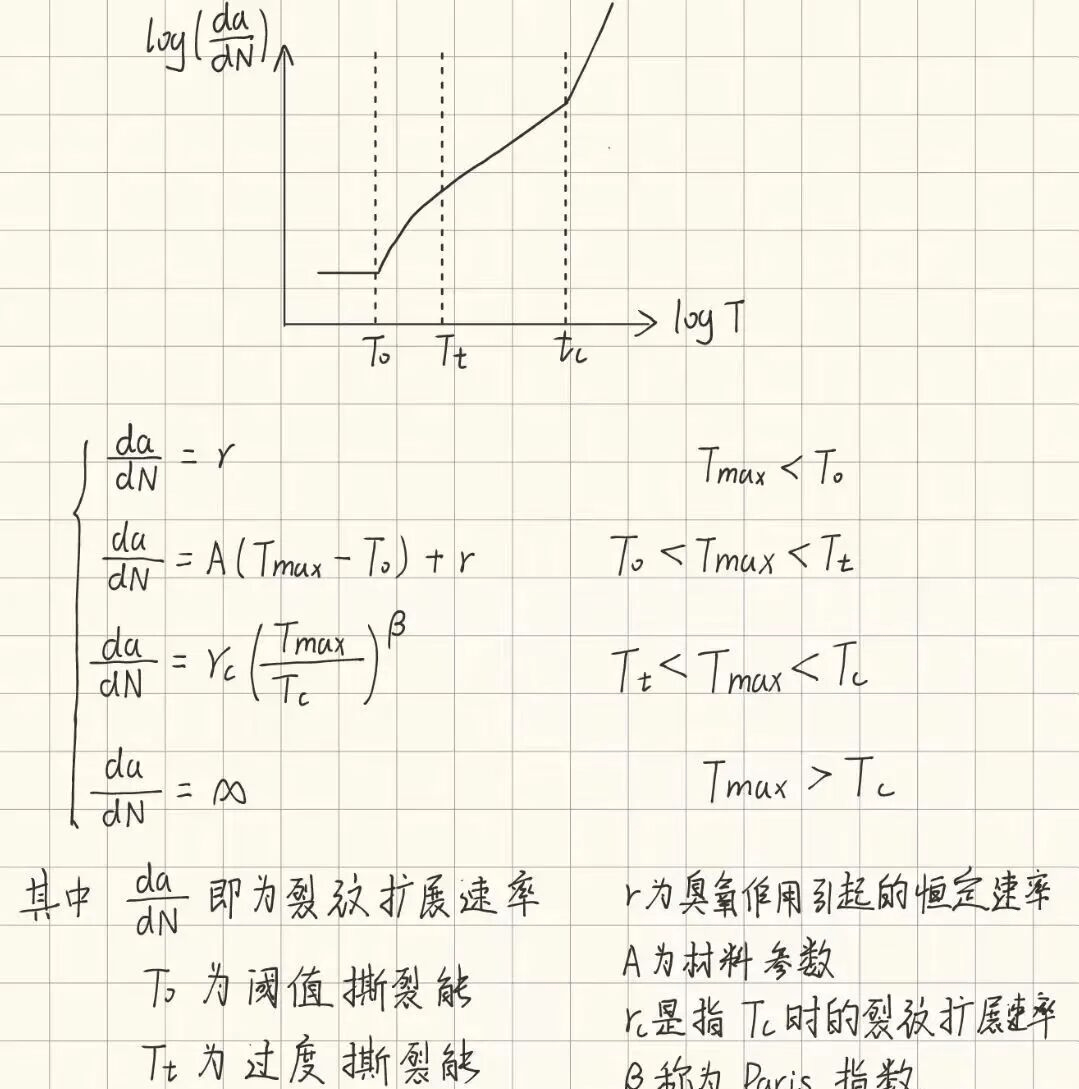 log(da/dN)
log T
T₀ Tₜ t꜀
da/dN = r Tmax < T₀
da/dN = A(Tmax - T₀) + r T₀ < Tmax < Tₜ
da/dN = r꜀(Tmax/T꜀)^β Tₜ < Tmax < T꜀
da/dN = ∞ Tmax > T꜀
其中 da/dN 即为裂纹扩展速率
T₀ 为阈值撕裂能
Tₜ 为过度撕裂能
r为臭氧作用引起的恒定速率
A为材料参数
r꜀是指 T꜀时的裂纹扩展速率
β称为 Paris 指数